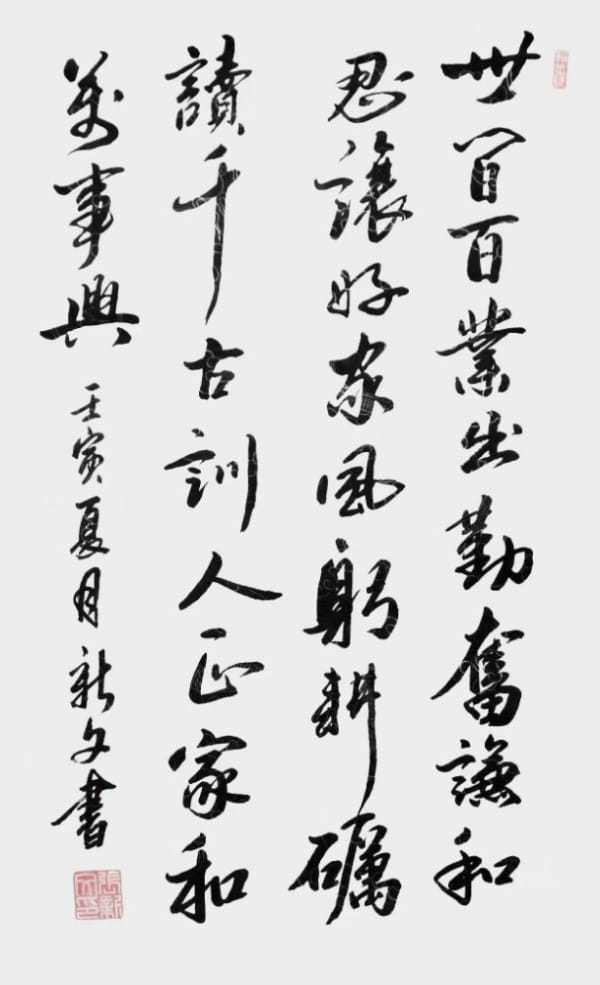 世間百業出勤奮謙和
忍讓好家風躬耕礪
讀千古訓人正家和
萬事興 壬寅夏月新文書
張新文印